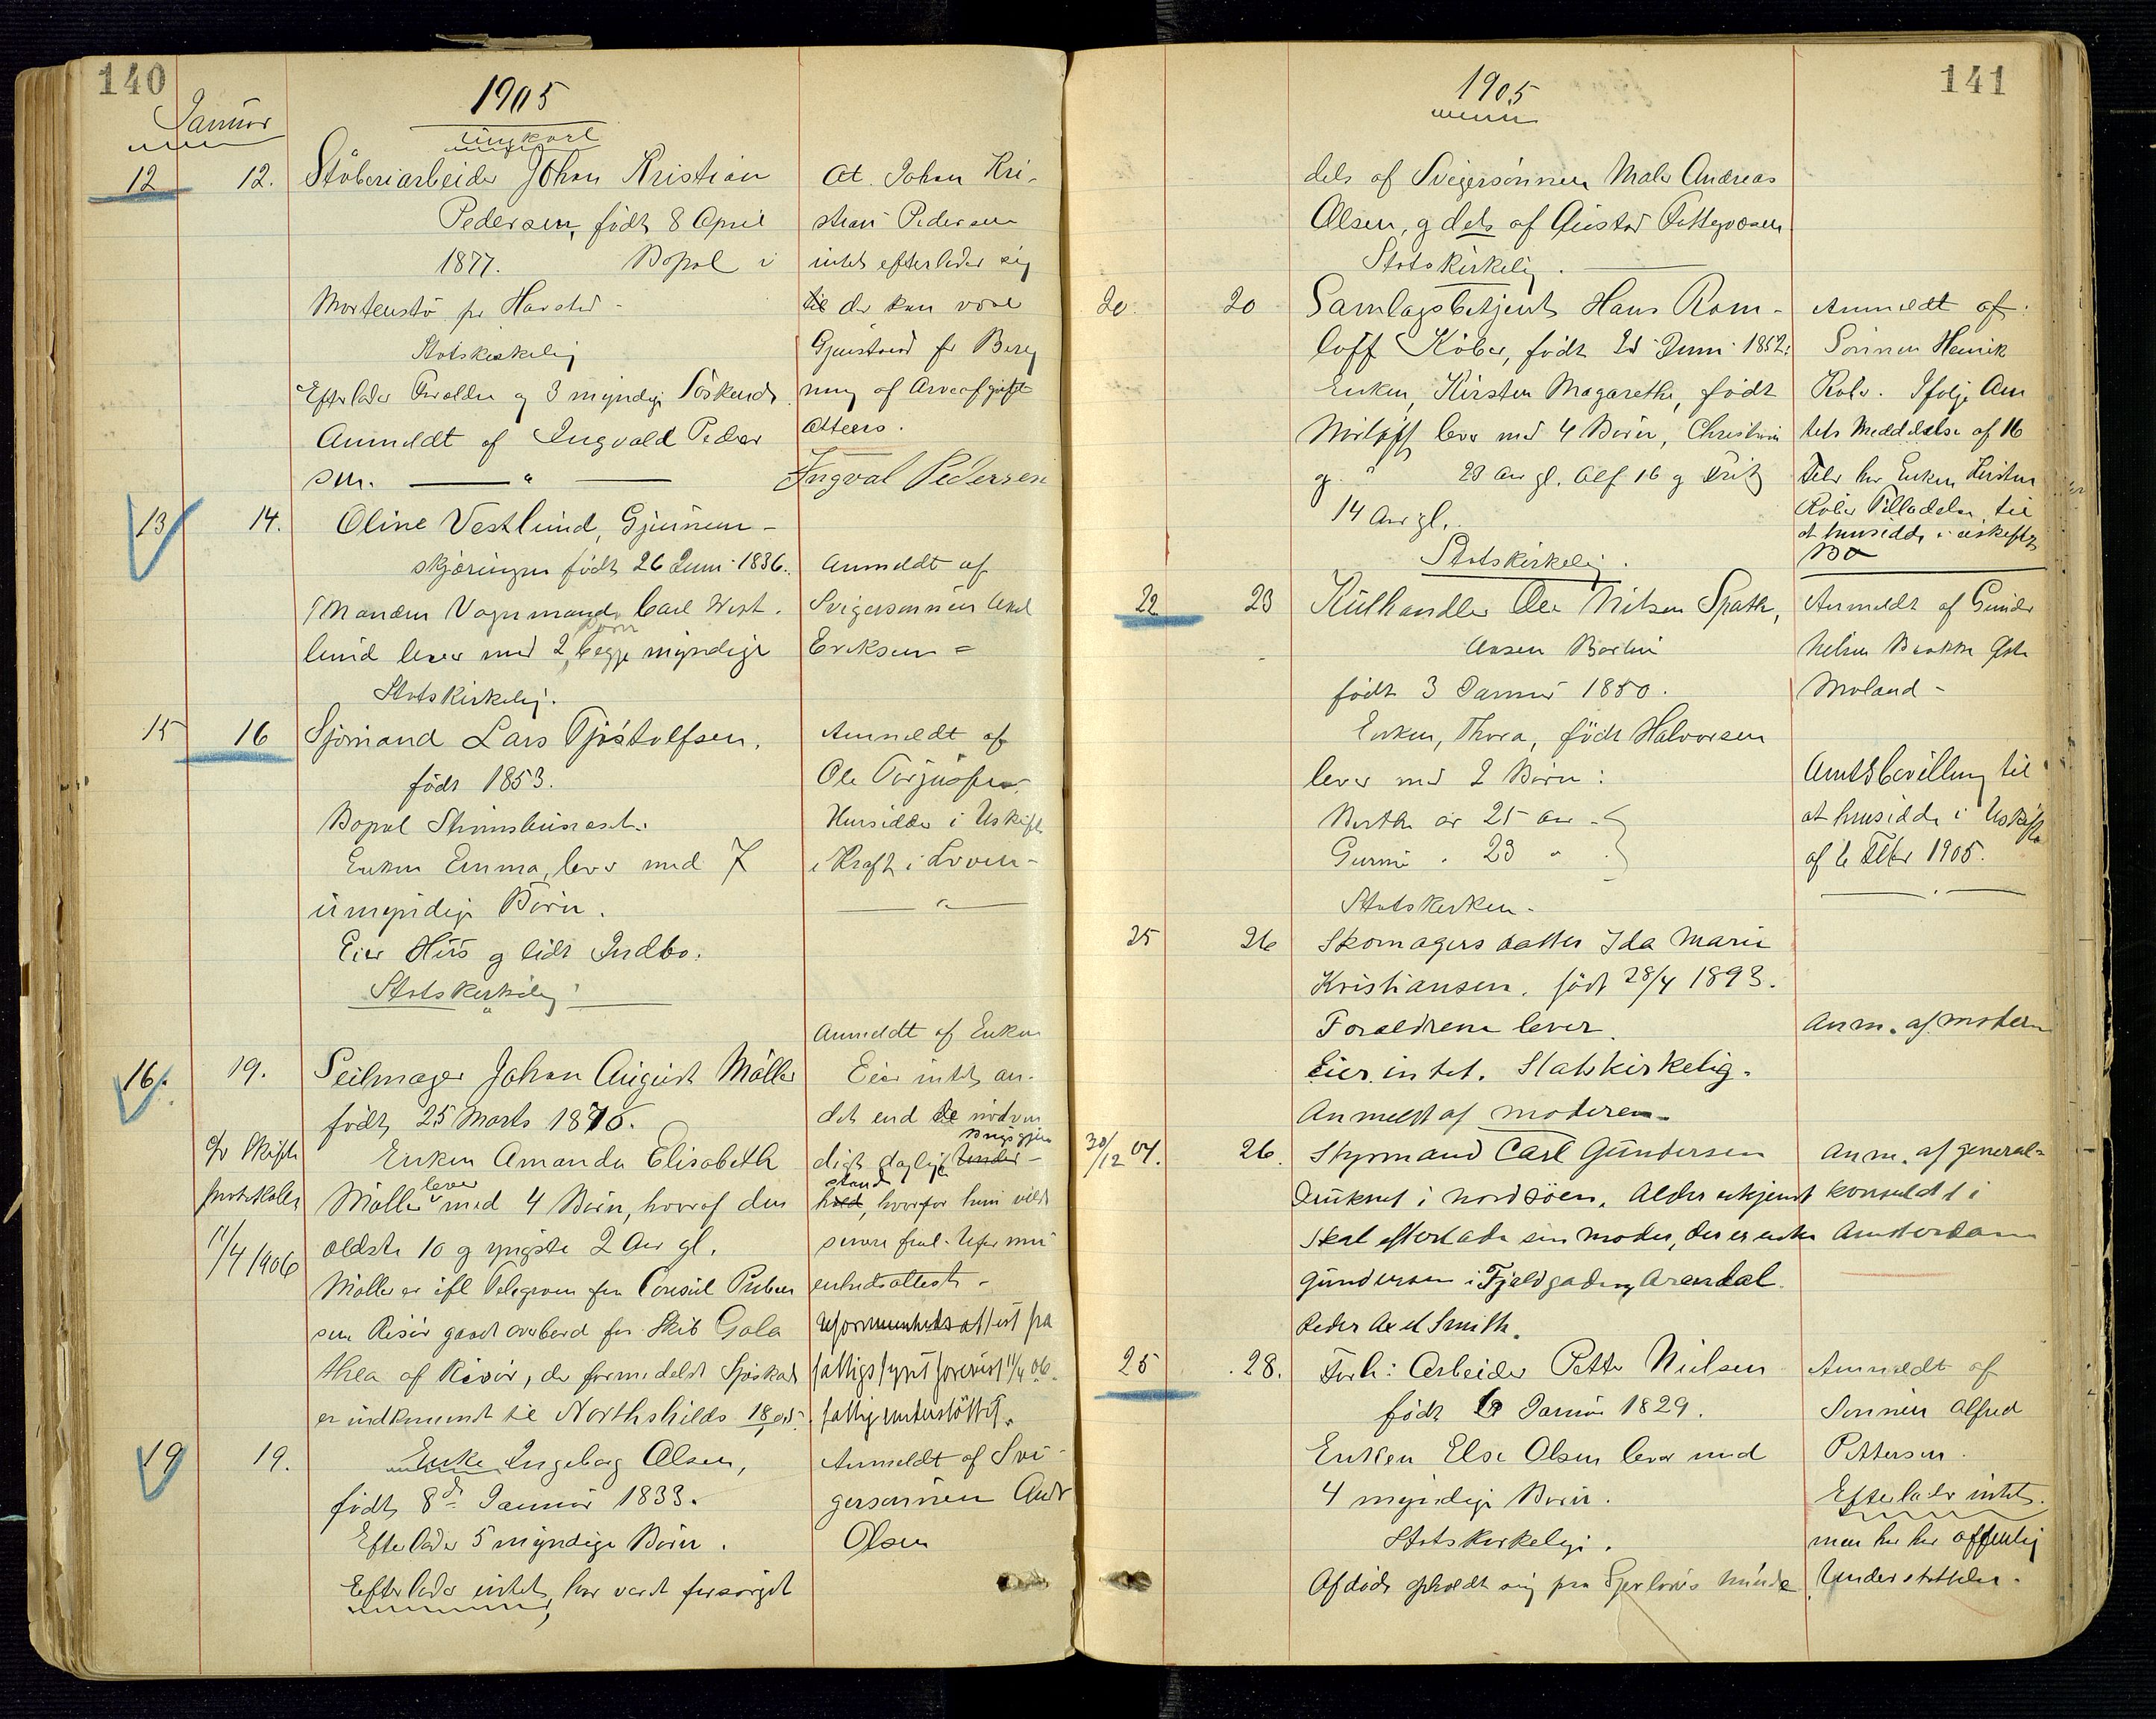 140
1905
Januar
ungkarl
12 12. Støberiarbeider Johan Kristian
Pedersen, født 8 April
1877. Bopæl i
Mortensto pr Harstad -
Statskirkelig
Efterlader Foraldre og 3 myndige Søskende
Anmeldt af Ingvald Peder
sen.
At Johan Kri-
stian Pedersen
intet efterlader sig
til der kan være
Gjenstand for Bereg
ning af Arveafgift
atteres.
Ingval Pedersen
13 14. Oline Vestlund, Gjennem-
skjæringen født 26 Juni 1836.
Manden Vognmand Carl West-
lund lever med 2 Børn begge myndige
Statskirkelig.
Anmeldt af
Svigersønnen Axel
Eriksen =
15 16 Sjømand Lars Tjøstolfsen,
født 1853.
Bopæl Strømsbunæset.
Enken Emma, lever med 7
umyndige Børn.
Eier Hus og lidt Indbo.
Statskirkelig
Anmeldt af
Ole Torjusen
Hensidder i Uskifte
i Kraft i Loven -
16. 19. Seilmager Johan August Møller
født 25 Marts 1876.
Enken Amanda Elisabeth
Møller lever med 4 Børn, hvoraf den
ældste 10 og yngste 2 Aar gl.
Møller er ifl Telegram fra Consul Preben
sen Risør gaaet overbord fra Skib Gala
thea af Risør, der formedelst Sjøskade
er indkommet til Northshilds 18
Skifte
protokoller
11/4 1906
Anmeldt af Enken
Eier intet an-
det end de nødven
digste daglige
stand, hvorfor hun vilde
senere frul. Ufor mu
enhedsattest -
Uformuenhedsattest fra
fattigsynet forevist 11/4 06.
fattigunderstøttet.
19 19. Enke Ingeborg Olsen,
født 8de Januar 1833.
Efterlader 5 myndige Børn.
Efterlader intet, har været forsørget
Anmeldt af Svi-
gersønnen Andr
Olsen
141
1905
dels af Svigersønnen Maler Andreas
Olsen, og dels af Austad Fattigvæsen
Statskirkelig.
20. 20 Samlagsbetjent Hans Rom-
loff Køber, født 25 Juni 1852.
Enken, Kirsten Magarethe, født
lever med 4 Børn, Christian
og 23 Aar gl. Alf 16 og Fritz
14 Aar gl.
Statskirkelig.
Anmeldt af
Sønnen Henrik
Køber. Ifølge Am
tets Meddelelse af 16
Febr har Enken Kirsten
Køber Tilladelse til
at hensidde i uskiftet
Bo
22 23 Kulhandler Ole Nilsen Spath,
født 3 Januar 1850.
Enken, Thora, født Halvorsen
lever med 2 Børn:
Berthe er 25 Aar
Gurine " 23 "
Statskirken.
Anmeldt af Gunder
Nilsen Bakke Øste
Moland -
Amtsbevilling til
at hensidde i Uskifte
af 6 Febr 1905.
25 26 Skomagers datter Ida Marie
Kristiansen. født 28/4 1893.
Foraeldrene lever.
Eier intet. Statskirkelig.
Anmeldt af moderen.
Anm. af modern
30/12 04. 26. Styrmand Carl Gundersen
Druknet i Nordsøen. Alder ukjendt
Skal efterlade sin moder, der er enke
Gundersen i Fjeldgaden Arendal.
Reder Axel Smith.
Anm. af general-
konsulat i
Amsterdam
25 28. Forh: Arbeider Petter Nielsen
født Januar 1829.
Enken Else Olsen lever med
4 myndige Børn.
Statskirkelig.
Afdøde opholdt sig paa
Anmeldt af
Sønnen Alfred
Pettersen.
Efterlader intet.
men har havt offentlig
Understøttelse.